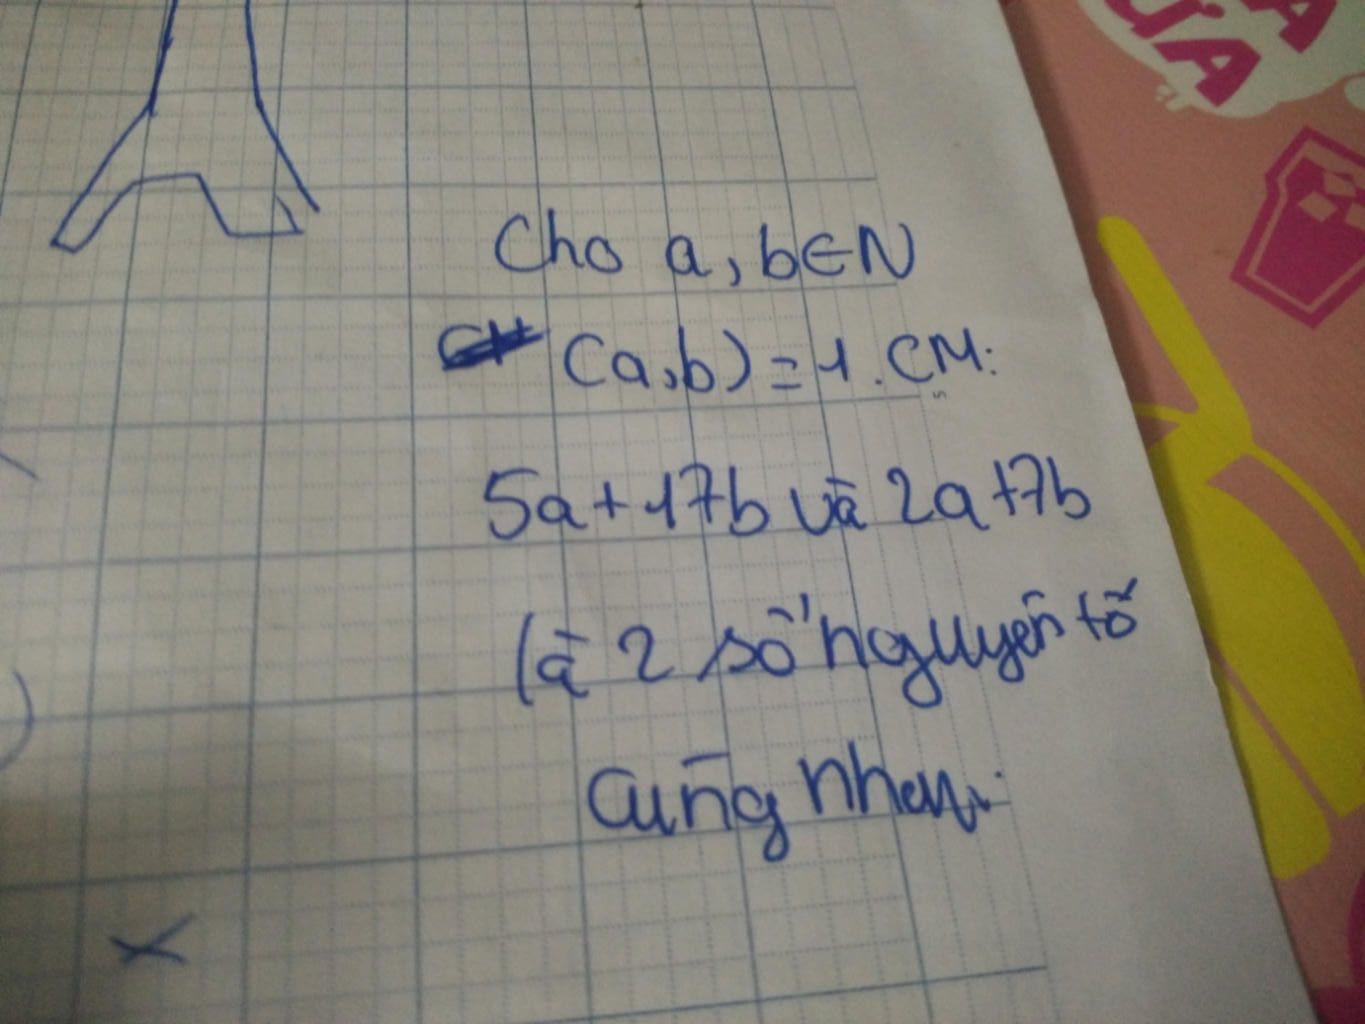 Cho a, b∈N
(a,b)=1. CM:
5a+17b và 2a+7b
là 2 số nguyên tố
cùng nhau.